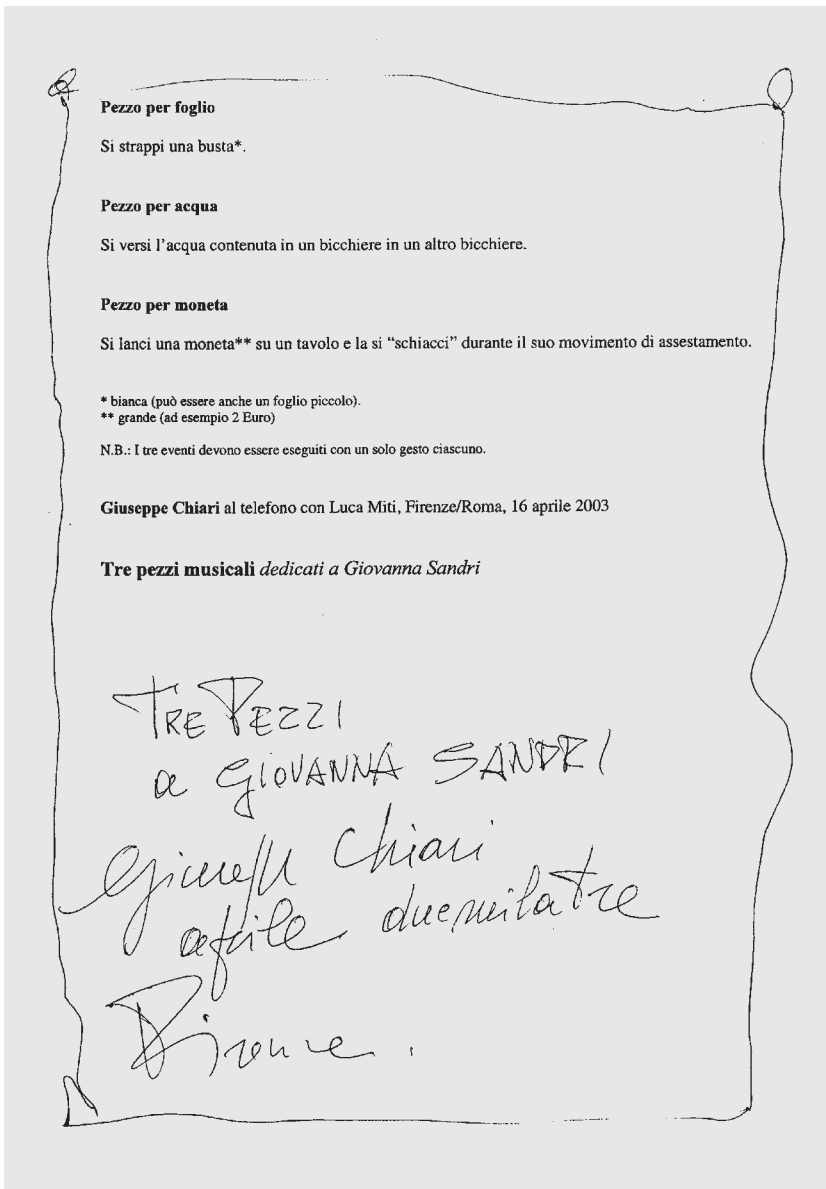 Pezzo per foglio
Si strappi una busta*.
Pezzo per acqua
Si versi l’acqua contenuta in un bicchiere in un altro bicchiere.
Pezzo per moneta
Si lanci una moneta** su un tavolo e la si “schiacci” durante il suo movimento di assestamento.
* bianca (può essere anche un foglio piccolo).
** grande (ad esempio 2 Euro)
N.B.: I tre eventi devono essere eseguiti con un solo gesto ciascuno.
Giuseppe Chiari al telefono con Luca Miti, Firenze/Roma, 16 aprile 2003
Tre pezzi musicali dedicati a Giovanna Sandri
TRE PEZZI
a GIOVANNA SANDRI
Giuseppe Chiari
aprile duemilatre
Firenze.